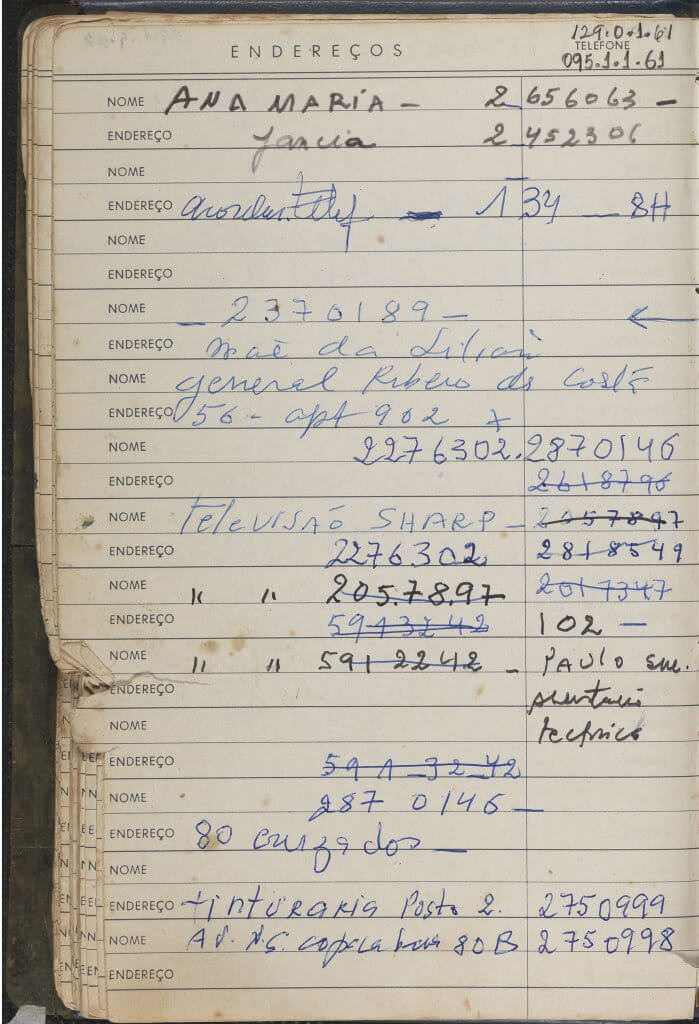 129.0.1.61
ENDEREÇOS TELEFONE
095.1.1.61
NOME ANA MARIA - 2 656063 -
ENDEREÇO 2 452306
NOME
ENDEREÇO 134 - 8H
NOME
ENDEREÇO
NOME - 2370189 - ←
ENDEREÇO mãe da Lilian
NOME general Ribeiro da Costa
ENDEREÇO 56 - apt 902 +
NOME 2276302. 2870146
ENDEREÇO 2618796
NOME TELEVISÃO SHARP - 2057897
ENDEREÇO 2276302 2818549
NOME " " 205.78.97 2017347
ENDEREÇO 5913242 102 -
NOME " " 5912242 - PAULO
ENDEREÇO
NOME tecnica
ENDEREÇO 591-32-42
NOME 287 0146 -
ENDEREÇO 80 cruzados -
NOME
ENDEREÇO tinturaria Posto 2. 2750999
NOME AV. N.S. copacabana 80B 2750998
ENDEREÇO